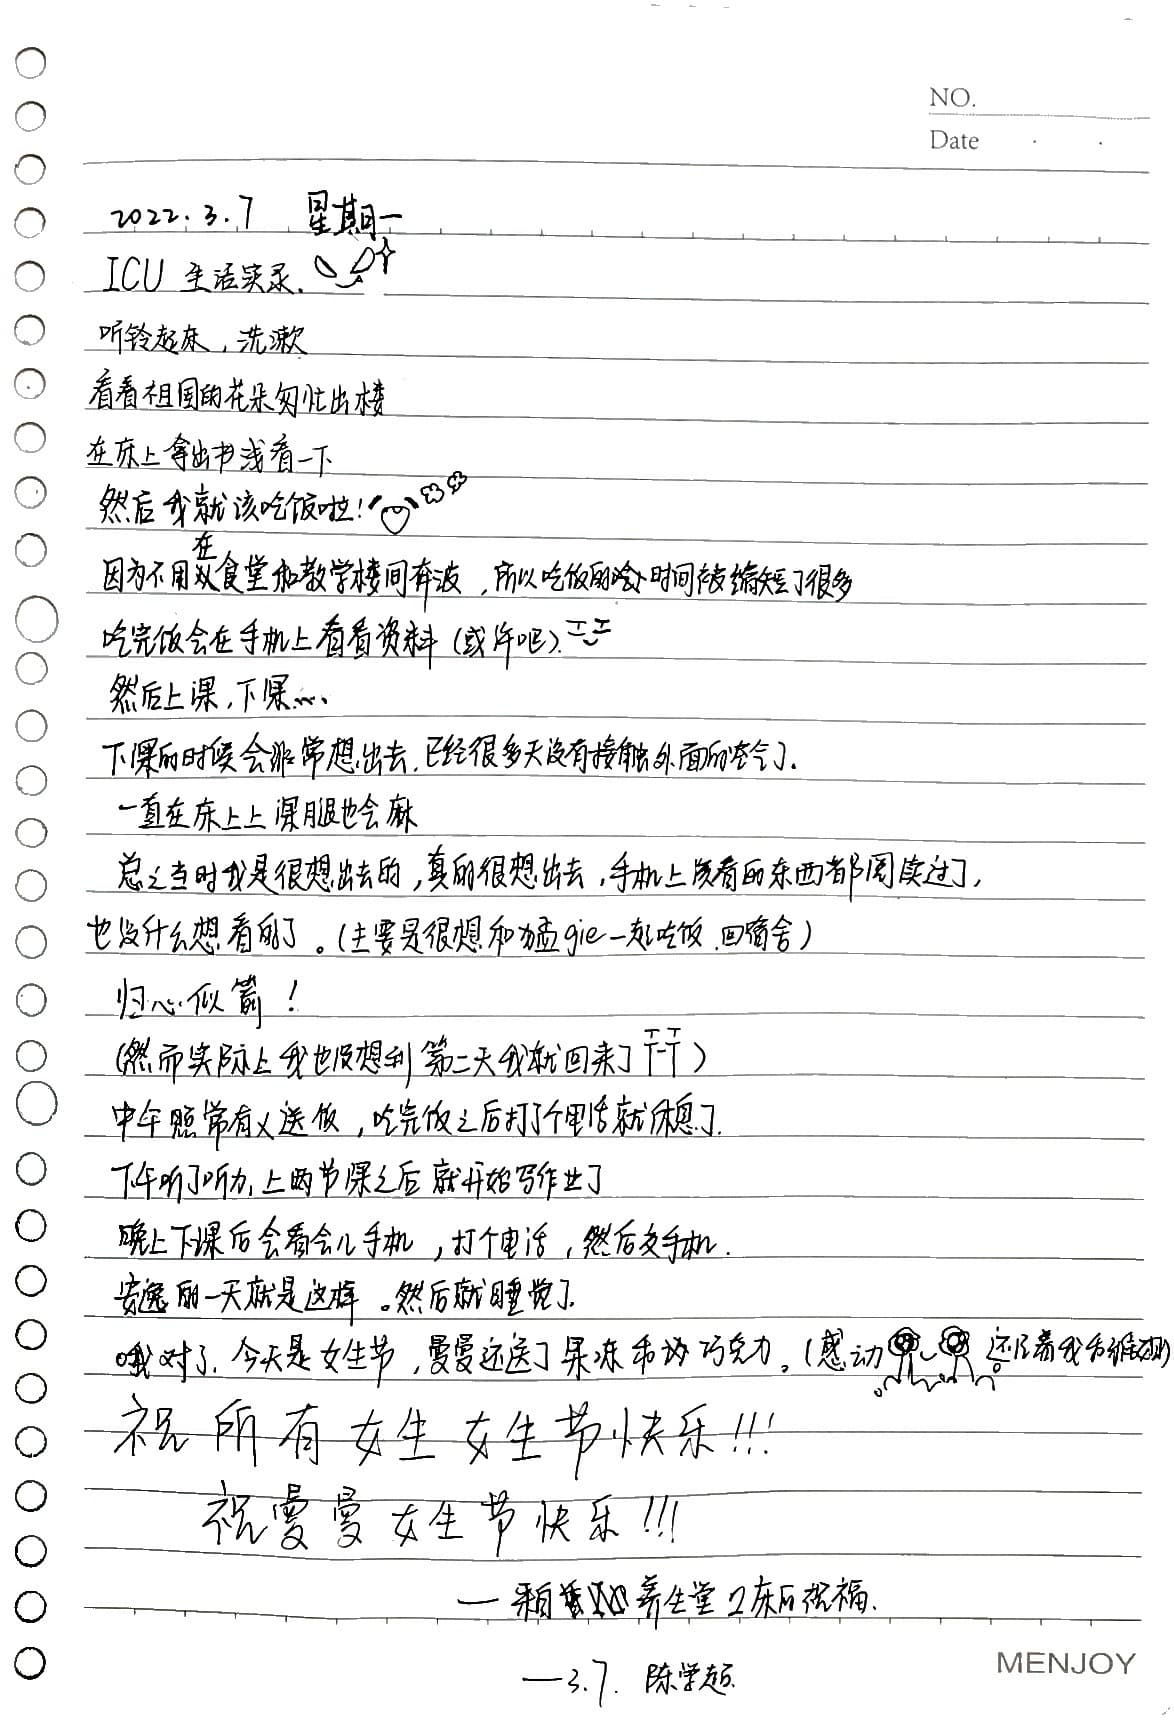 NO.
Date
2022.3.7 星期一
ICU 生活实录.
听铃起床,洗漱
看看祖国的花朵匆忙出楼
在床上拿出书浅看一下
然后我就该吃饭啦!
因为不用在食堂和教学楼间奔波,所以吃饭的时间被缩短了很多
吃完饭会在手机上看看资料(或许吧).
然后上课,下课...
下课的时候会非常想出去.已经很多天没有接触外面的空气了.
一直在床上上课腿也会麻
总之当时我是很想出去的,真的很想出去,手机上该看的东西都阅读过了,
也没什么想看的了。(主要是很想和孟gie一起吃饭.回宿舍)
归心似箭!
(然而实际上我也没想到第二天我就回来了 T-T)
中午照常有人送饭,吃完饭之后打了个电话就休息了.
下午听了听力,上两节课之后就开始写作业了
晚上下课后会看会儿手机,打个电话,然后交手机.
安逸的一天就是这样。然后就睡觉了.
哦对了.今天是女生节,曼曼还送了果冻和巧克力。(感动 还记着我
祝所有女生女生节快乐!!!
祝曼曼女生节快乐!!!
—来自养生堂2床的祝福.
—3.7. 陈学超
MENJOY